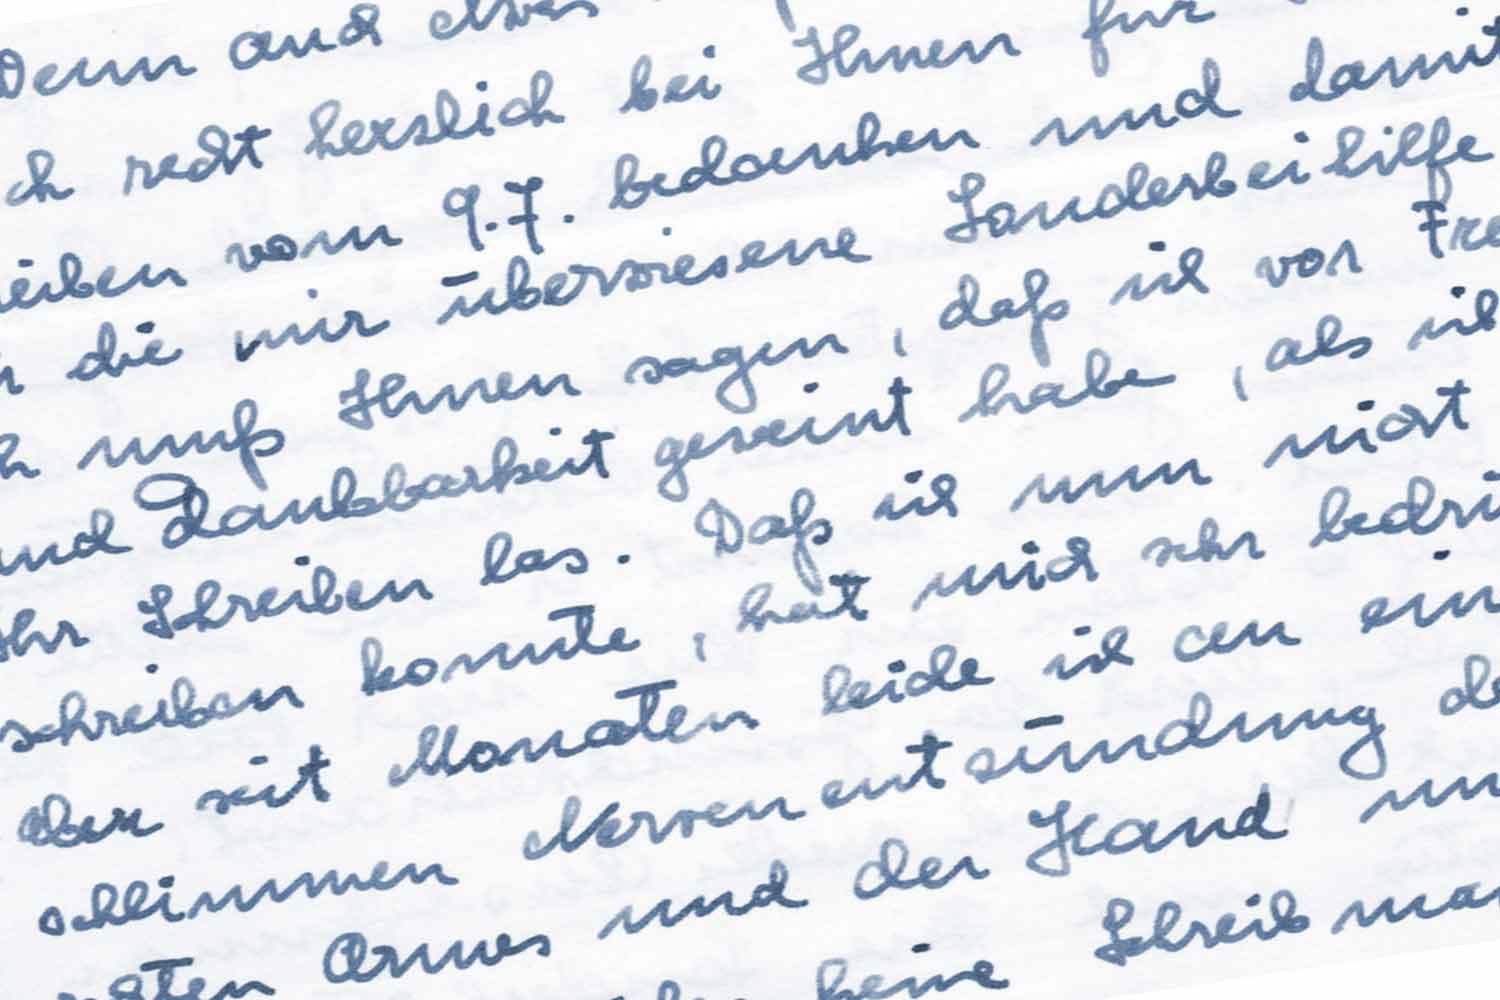 Wenn auch etwas
ch recht herzlich bei Ihnen für
eiben vom 9.7. bedanken und damit
die mir überwiesene Sonderbeihilfe
h muß Ihnen sagen, daß ich vor Fre
und Dankbarkeit geweint habe, als ich
Ihr Schreiben las. Daß ich nun nicht
schreiben konnte, hat mich sehr bedrü
aber seit Monaten leide ich an ein
schlimmen Nervenentzündung de
chten Armes und der Hand un
keine Schreibma